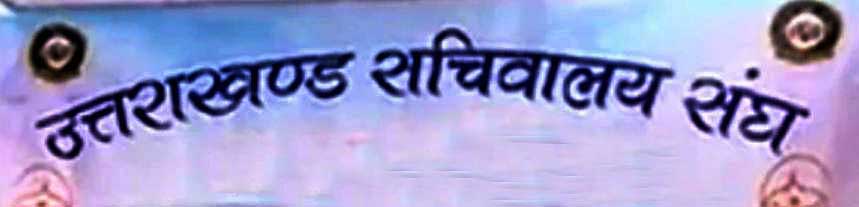 उत्तराखण्ड सचिवालय संघ